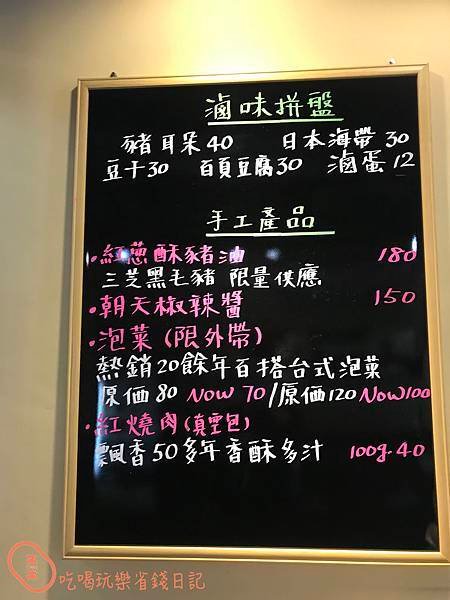 滷味拼盤
豬耳朵40 日本海帶30
豆干30 百頁豆腐30 滷蛋12
手工產品
·紅蔥酥豬油 180
三芝黑毛豬 限量供應
·朝天椒辣醬 150
·泡菜(限外帶)
熱銷20餘年百搭台式泡菜
原価80 Now 70/原価120 Now100
·紅燒肉(真空包)
飄香50多年香酥多汁 100g.40
吃喝玩樂省錢日記